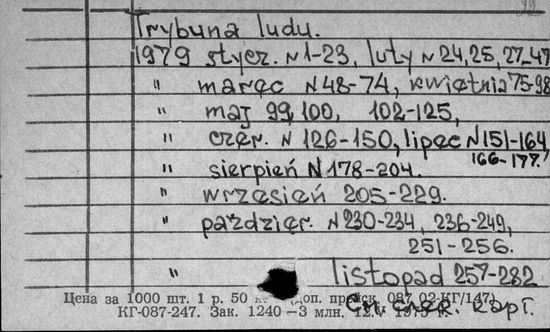 Trybuna ludu.
1979 stycz. N 1-23, luty N 24,25, 27-47
" marzec N 48-74, kwietnia 75-98
" maj 99,100, 102-125,
" czer. N 126-150, lipec N 151-164
166-177.
" sierpień N 178-204.
" wrzesień 205-229.
" paździer. N 230-234, 236-249,
251-256.
" listopad 257-282
Цена за 1000 шт. 1 р. 50 к. (доп. прейск. 087 02-КГ/147)
КГ-087-247. Зак. 1240—3 млн.
См. след. карт.